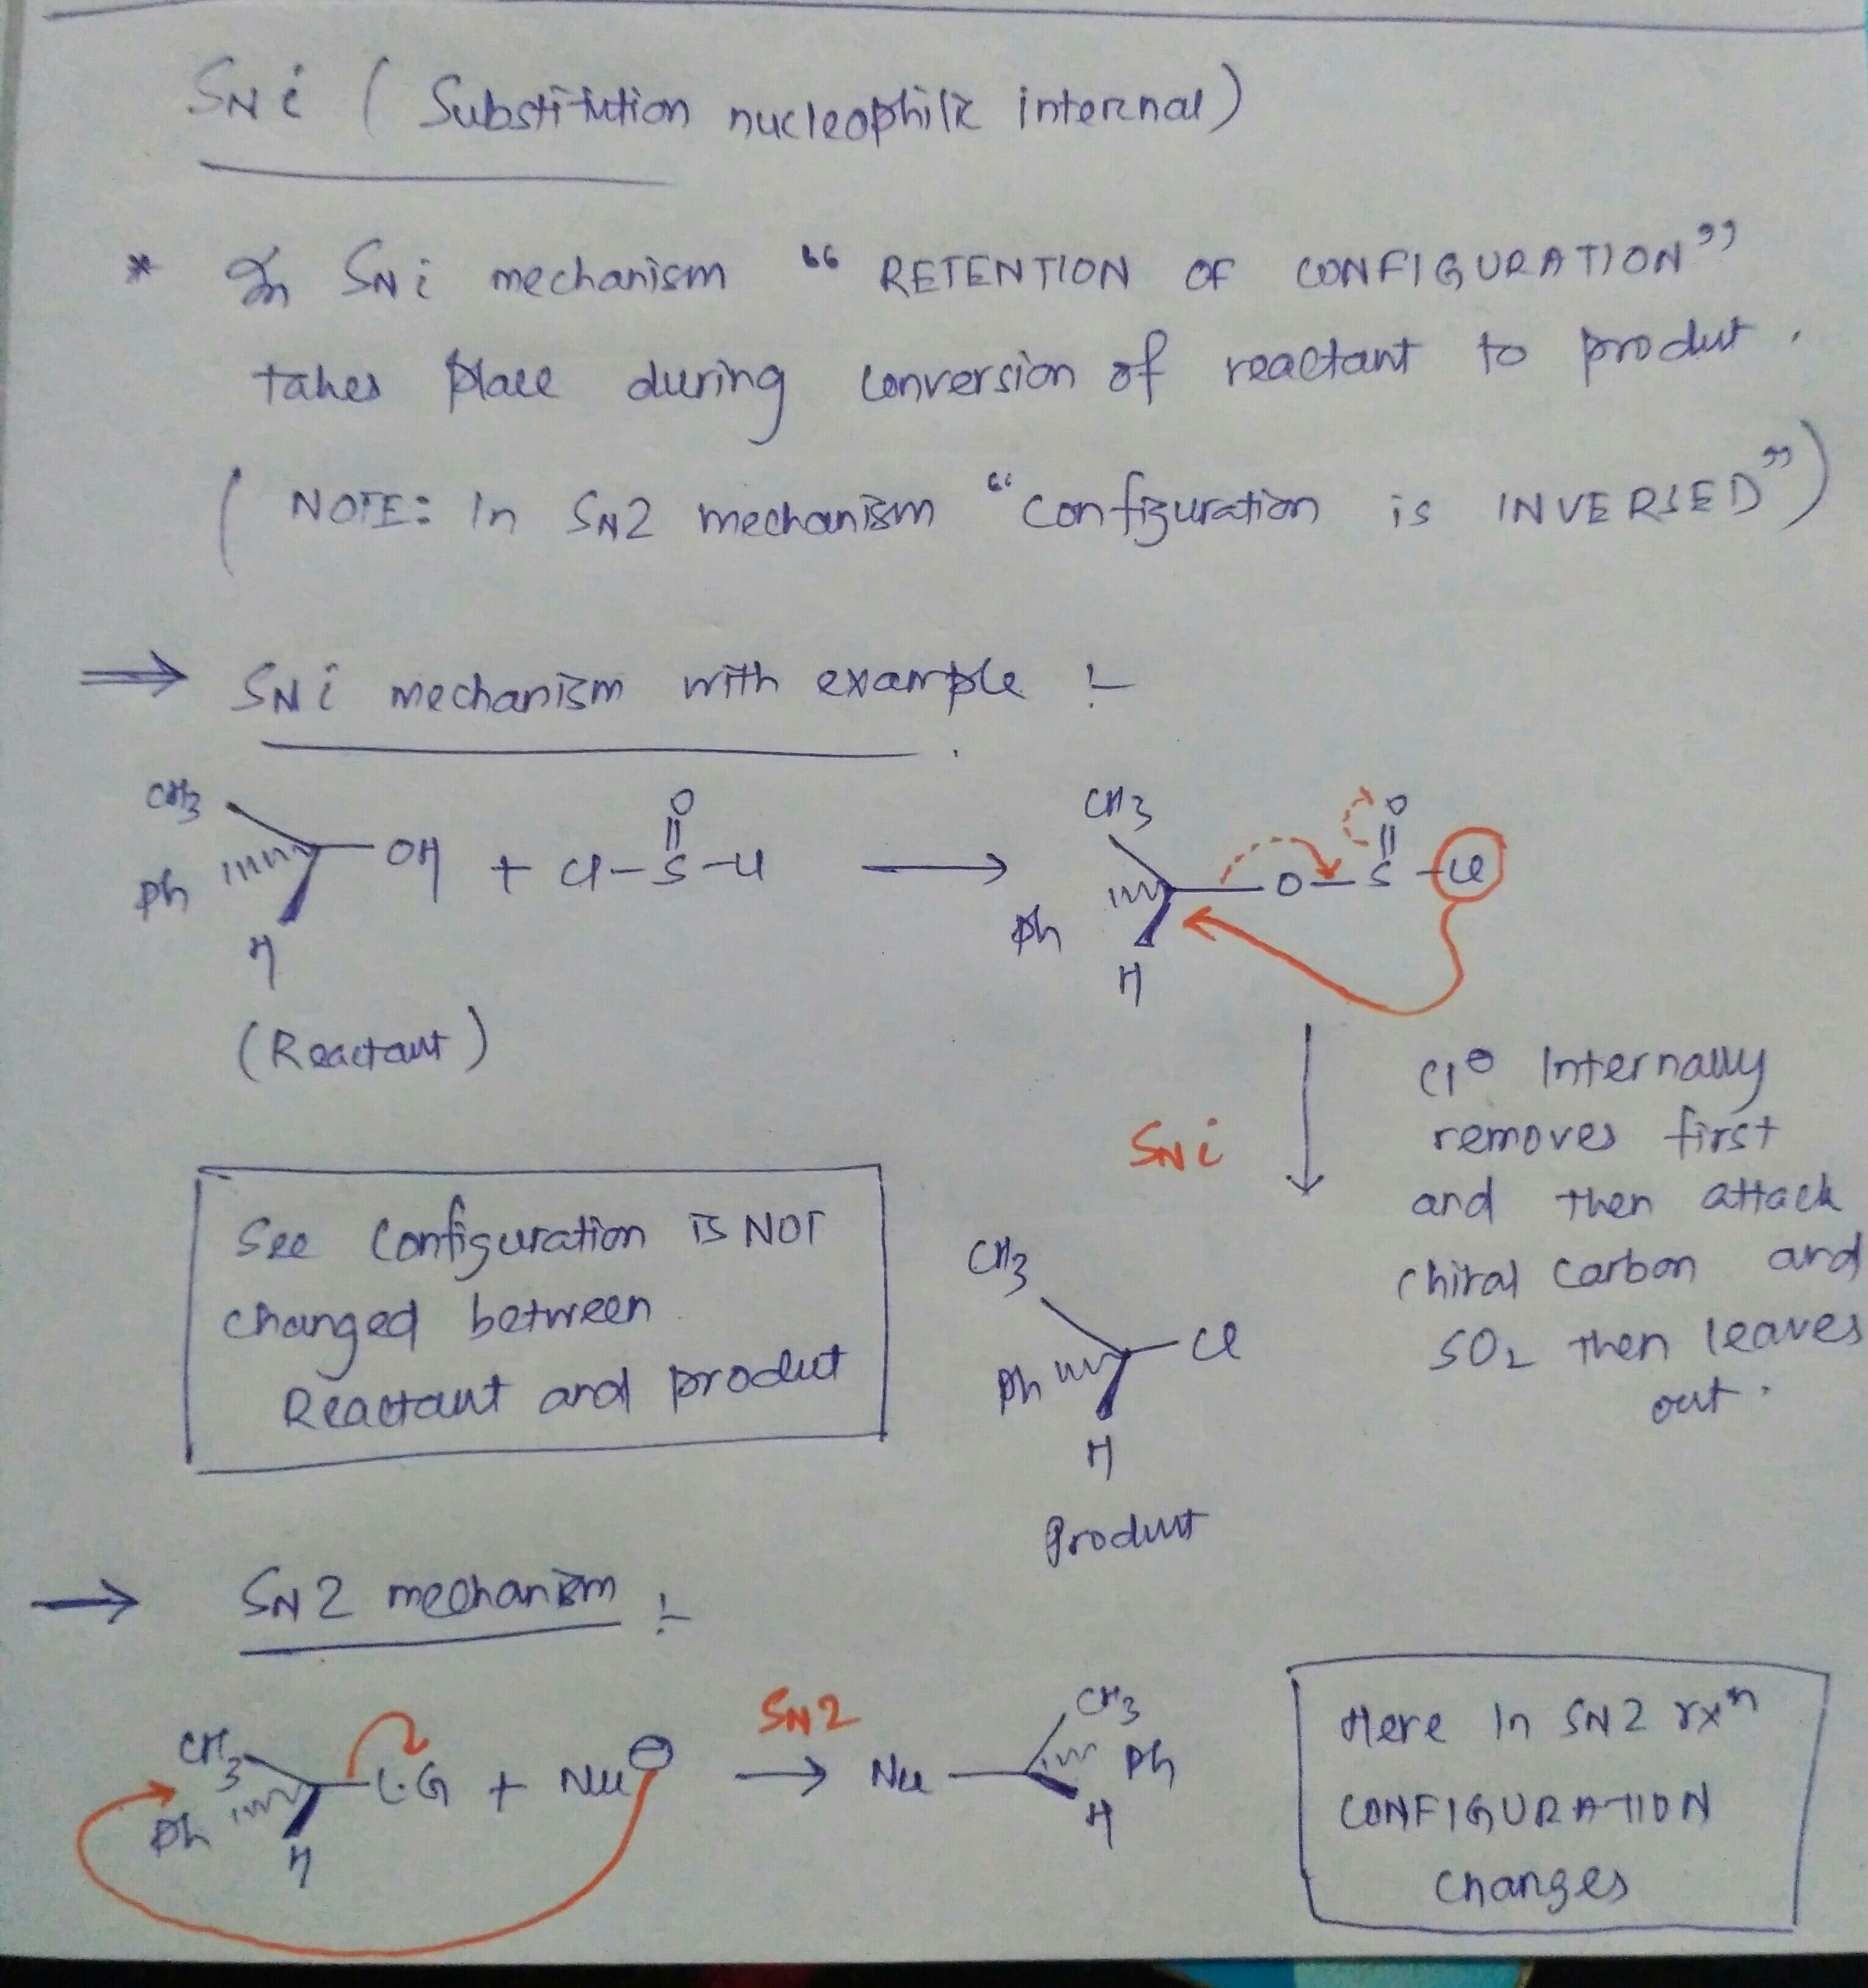 SN i ( Substitution nucleophilic internal)
* In SN i mechanism “ RETENTION OF CONFIGURATION ”
takes place during conversion of reactant to product.
( NOTE: In SN2 mechanism “ configuration is INVERSED ” )
⇒ SN i mechanism with example :-
CH3
Ph
H
OH + Cl-S-Cl
O
→
CH3
Ph
H
O-S-Cl
O
(Reactant)
SN i
Cl⊖ Internally
removes first
and then attack
chiral carbon and
SO2 then leaves
out.
See Configuration is NOT
changed between
Reactant and product
CH3
Ph
H
Cl
Product
→ SN2 mechanism :-
CH3
Ph
H
L.G + Nu⊖
SN2
→
Nu
CH3
Ph
H
Here In SN2 rxn
CONFIGURATION
changes